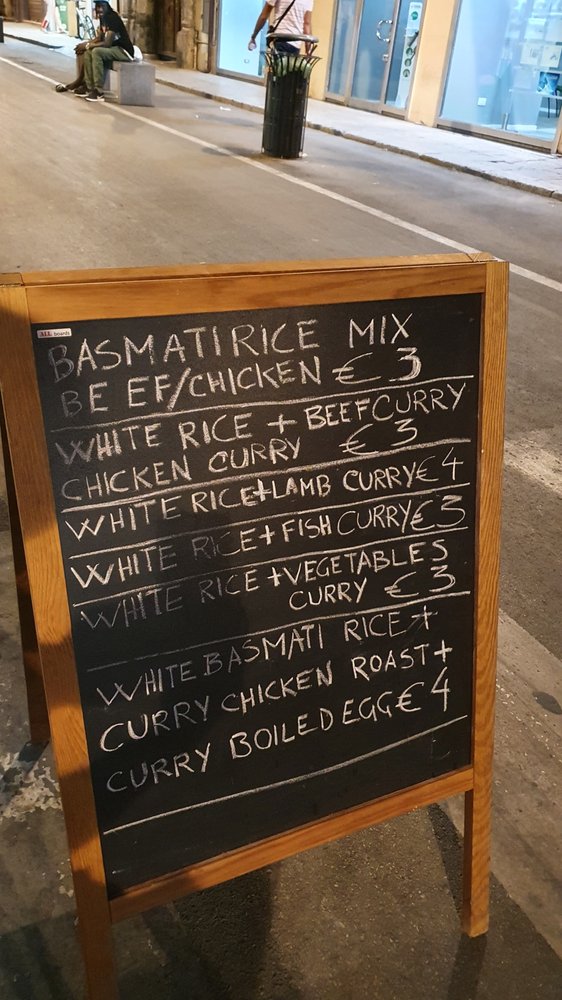 ALL boards
BASMATI RICE MIX
BEEF/CHICKEN € 3
WHITE RICE + BEEF CURRY
CHICKEN CURRY € 3
WHITE RICE+LAMB CURRY € 4
WHITE RICE+FISH CURRY € 3
WHITE RICE +VEGETABLES
CURRY € 3
WHITE BASMATI RICE +
CURRY CHICKEN ROAST +
CURRY BOILED EGG € 4